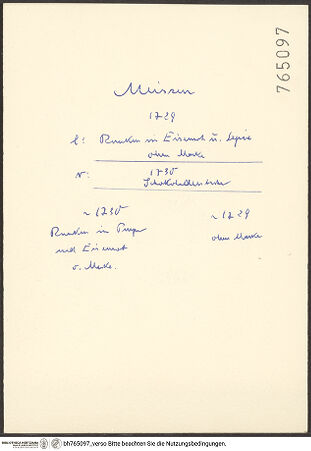 765097
Meissen
1729
l: Ranken in Eisenrot u. Sepia
ohne Marke
r: 1730
Schokoladenbecher
~ 1730
Ranken in Purpur
und Eisenrot
o. Marke.
~ 1729
ohne Marke
BIBLIOTHECA HERTZIANA
bh765097_verso Bitte beachten Sie die Nutzungsbedingungen.